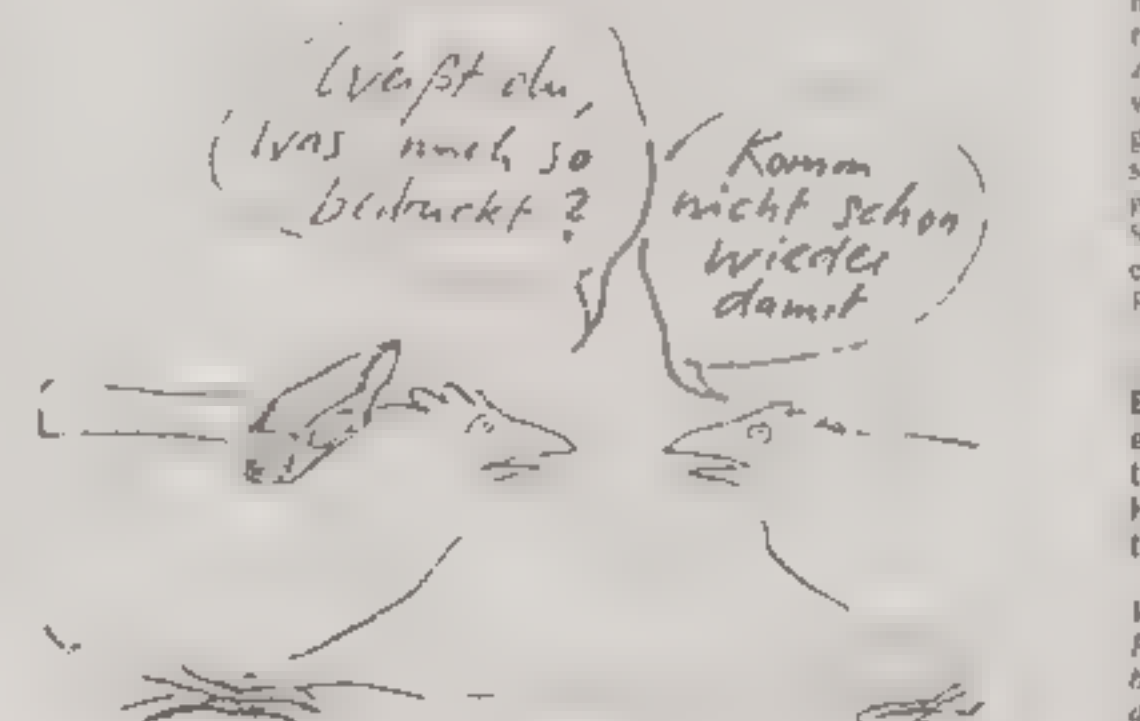 Weißt du,
was mich so
bedruckt?
Komm
nicht schon
wieder
damit